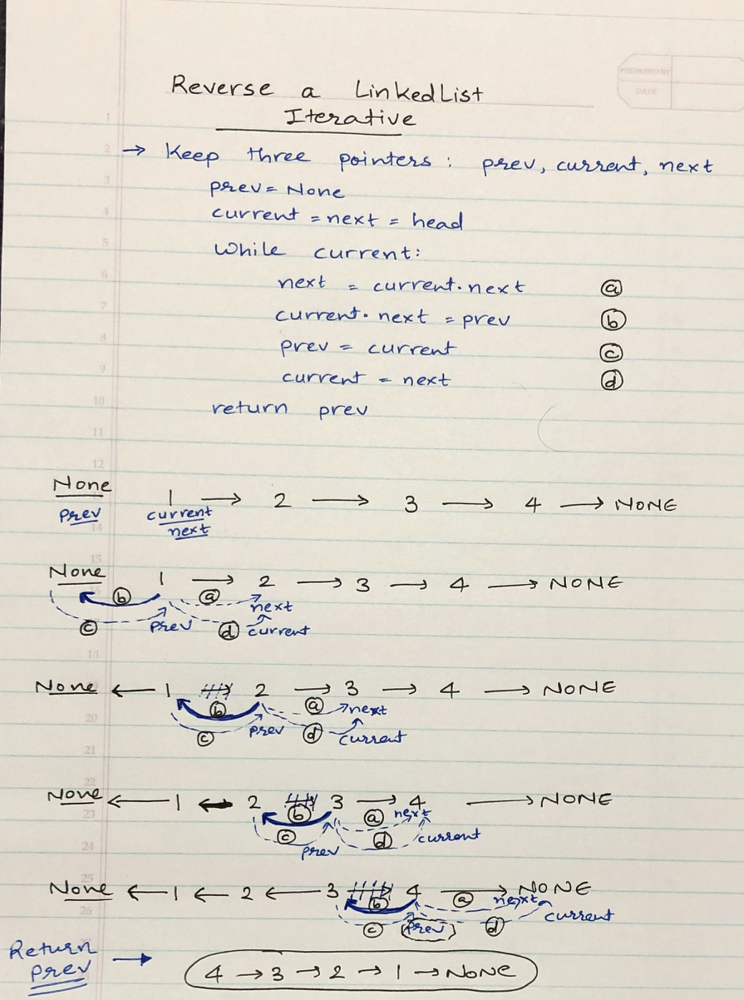 Reverse a LinkedList
Iterative
→ Keep three pointers: prev, current, next
prev = None
current = next = head
While current:
next = current.next ⓐ
current.next = prev ⓑ
prev = current ⓒ
current = next ⓓ
return prev
None 1 → 2 → 3 → 4 → NONE
prev current
next
None 1 → 2 → 3 → 4 → NONE
ⓑ ⓐ next
ⓒ prev ⓓ current
None ← 1 → 2 → 3 → 4 → NONE
ⓑ ⓐ next
ⓒ prev ⓓ current
None ← 1 ← 2 → 3 → 4 → NONE
ⓑ ⓐ next
ⓒ prev ⓓ current
None ← 1 ← 2 ← 3 → 4 → NONE
ⓑ ⓐ next
ⓒ prev ⓓ current
Return
prev → 4 → 3 → 2 → 1 → None